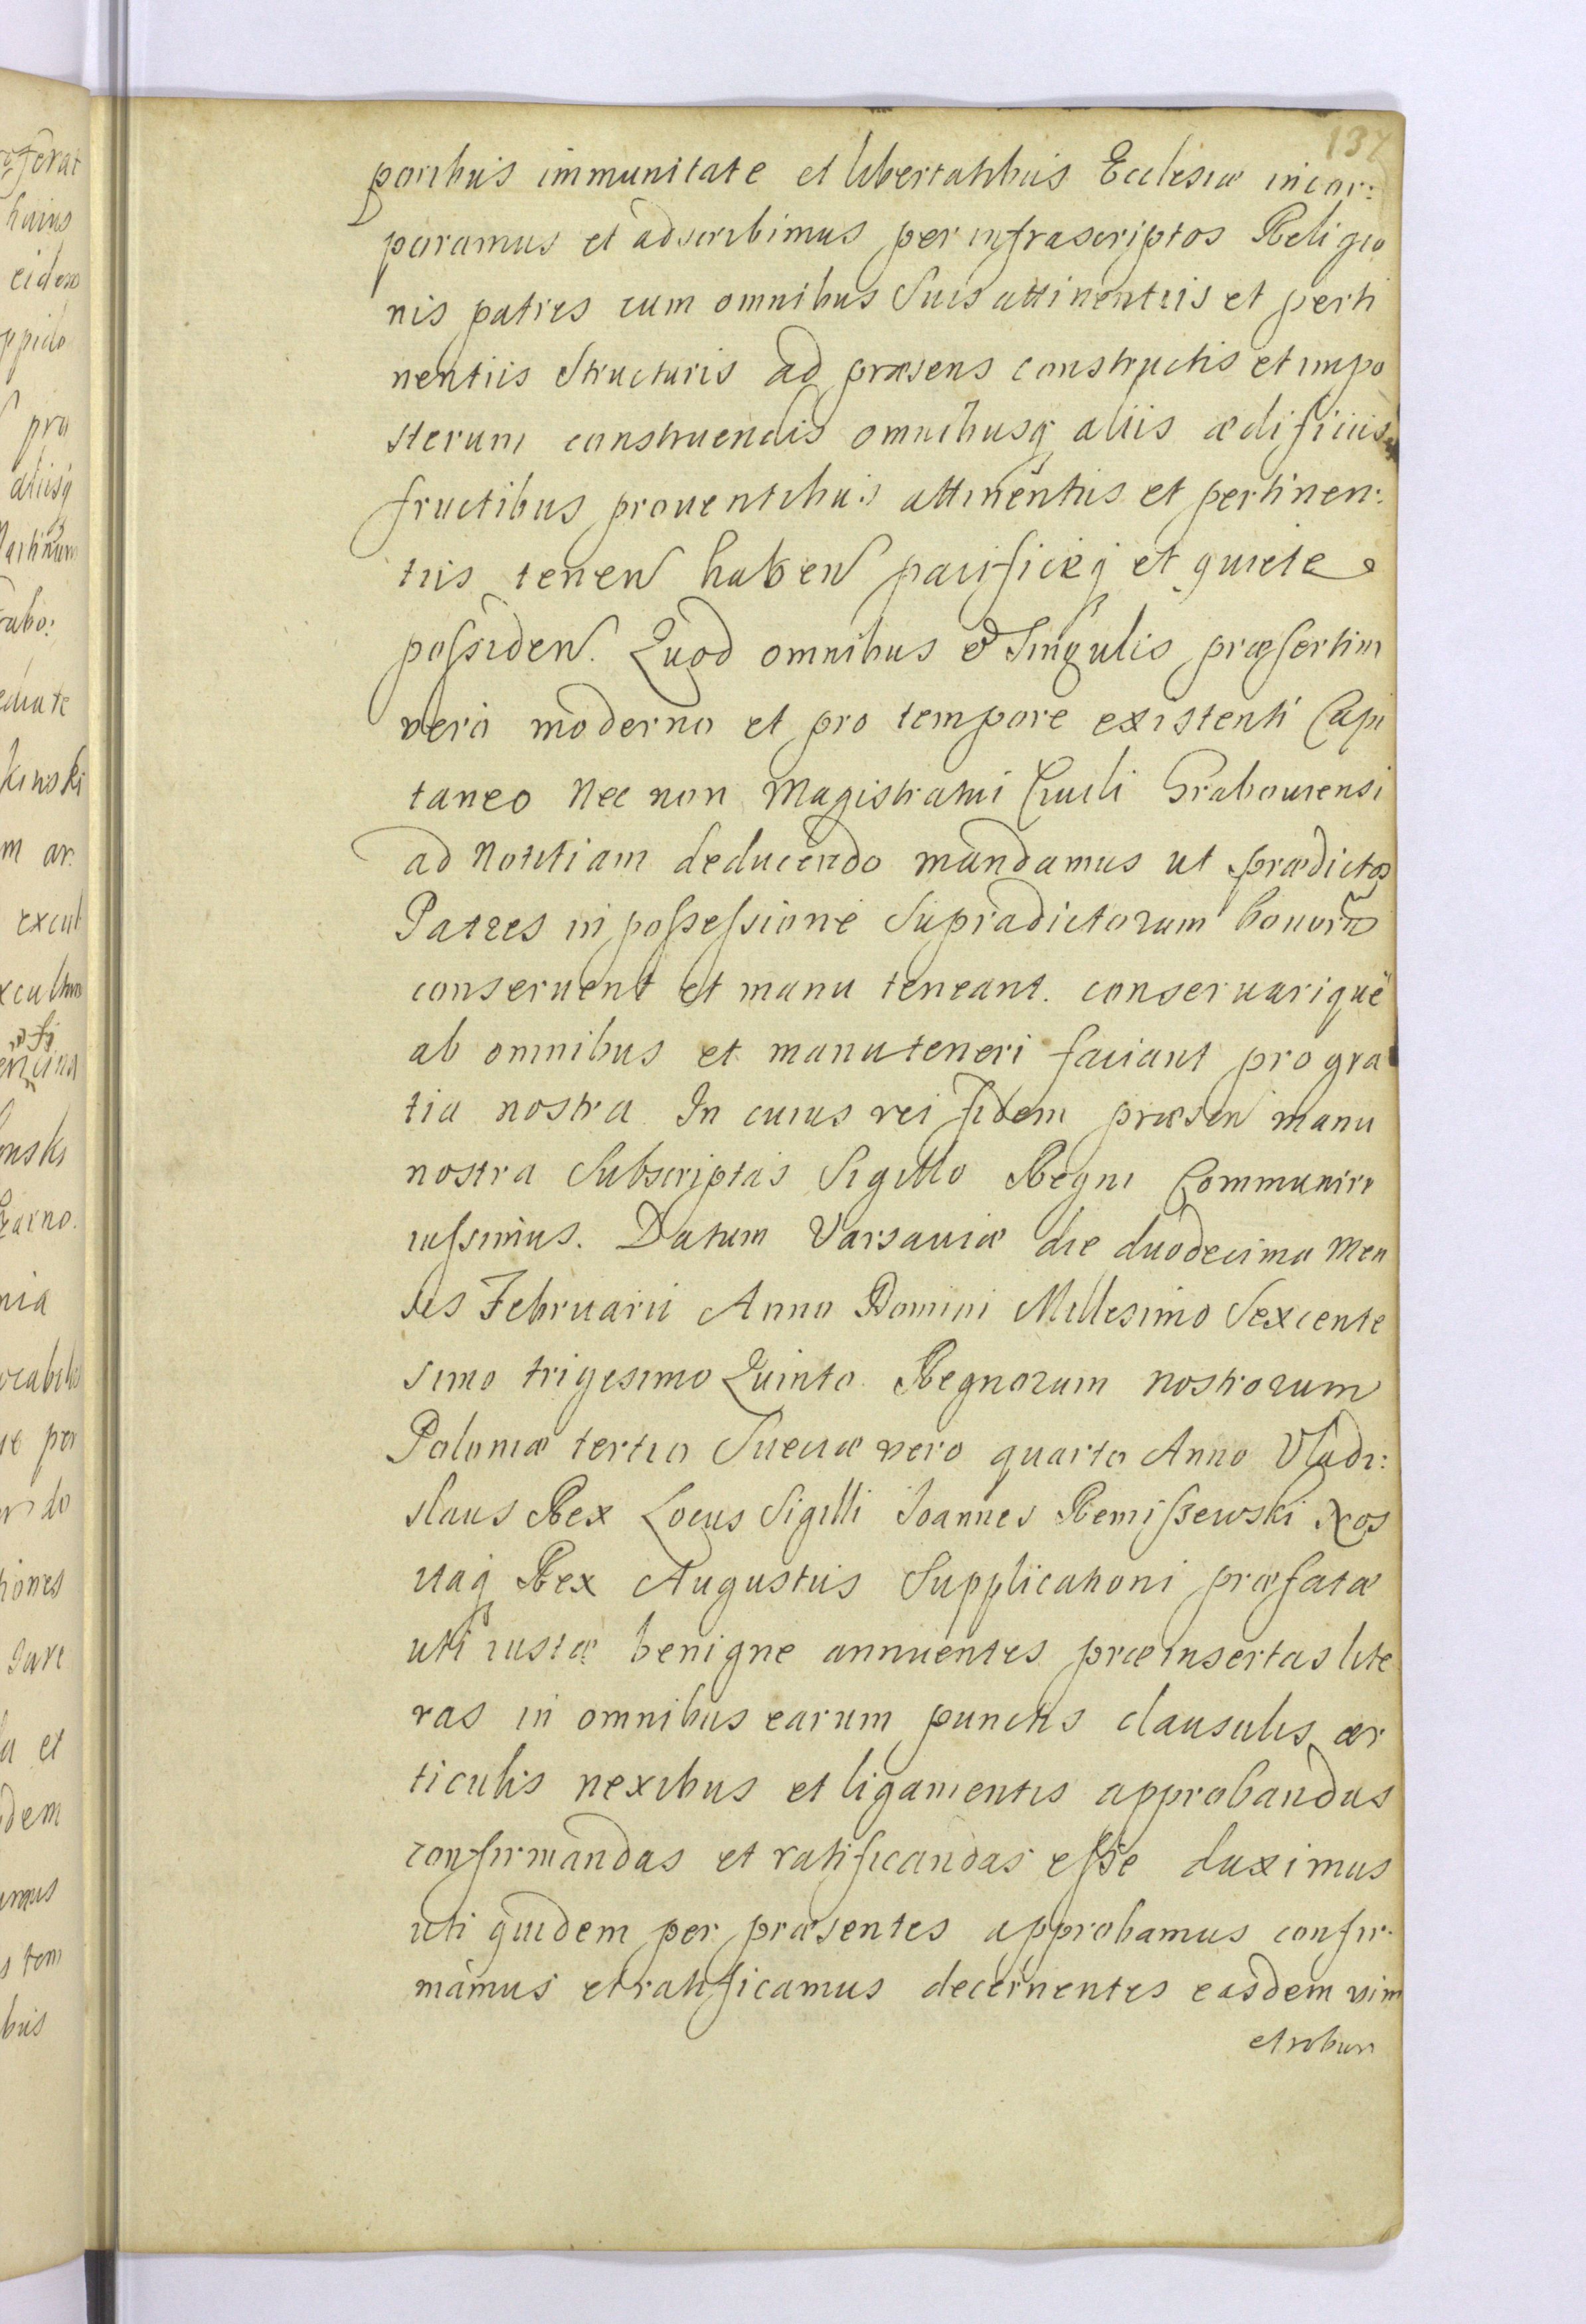 137
poribus immunitate et libertatibus Ecclesiæ incor:
poramus et adscribimus per infrascriptos Religio
nis patres cum omnibus Suis attinentiis et perti
nentiis Structuris ad præsens constructis et impo
sterum construendis omnibusq aliis ædificiis
fructibus prouentibus attinentiis et pertinen:
tiis tenen haben pacificeq et quiete
possiden. Quod omnibus & Singulis præsertim
vero moderno et pro tempore existenti Capi
taneo Nec non Magistratui Ciuili Grabouiensi
ad Notitiam deducendo mandamus ut prædictos
Patres in possessione Supradictorum bonorū
conseruent et manu teneant. conseruarique
ab omnibus et manuteneri faciant pro gra
tia nostra In cuius rei fidem præsen manu
nostra Subscriptas Sigillo Regni Communiri
iussimus. Datum Varsauiæ die duodecima Men
sis Februarii Anno Domini Millesimo Sexcente
simo trigesimo Quinto. Regnorum nostrorum
Poloniæ tertio Sueciæ vero quarto Anno Vladi:
slaus Rex Locus Sigilli Joannes Remiszewski Nos
itaq Rex Augustus Supplicationi præfatæ
uti iustæ benigne annuentes præinsertas lite
ras in omnibus earum punctis clausulis ar
ticulis nexibus et ligamentis approbandas
confirmandas et ratificandas esse duximus
uti quidem per præsentes approbamus confir.
mamus et ratificamus decernentes easdem vim
et robur